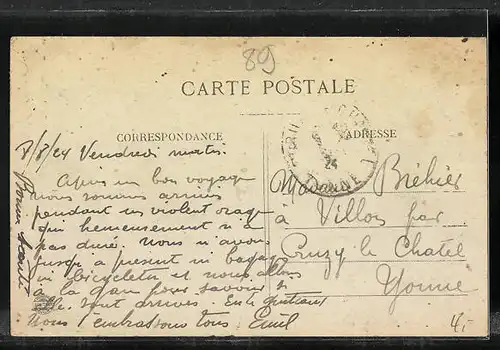 89
CARTE POSTALE
CORRESPONDANCE
ADRESSE
8/8/24 Vendredi matin.
Après un bon voyage
nous sommes arrivés
pendant un violent orage
qui heureusement n'a
pas duré. Nous n'avons
jusqu'à présent ni bagages
ni bicyclette et nous allons
à la gare pour savoir si
elle sont arrivés. En
Nous t'embrassons tous. Emil
Bonne Santé
Madame Bréhier
à Villon par
Cruzy le Chatel
Yonne
YONNE
24
4,-